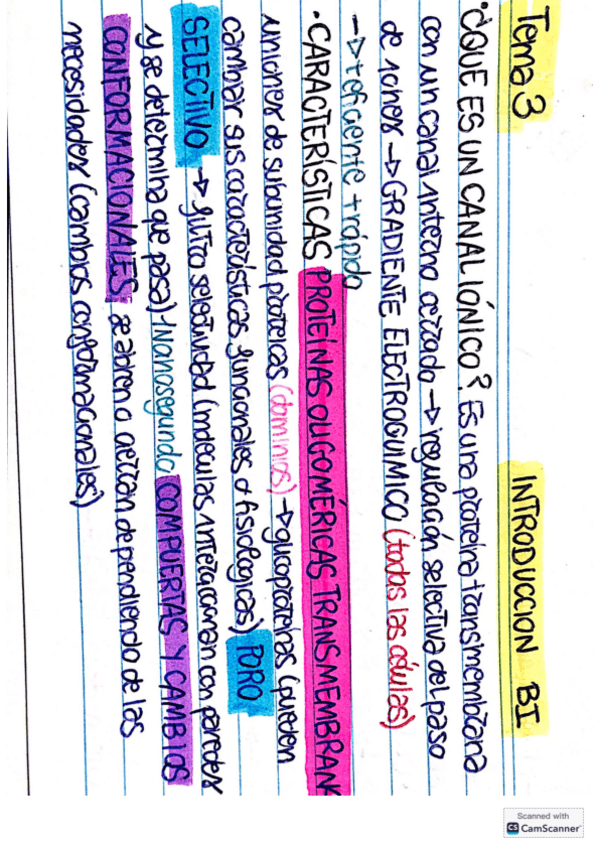 Tema 3 INTRODUCCION BI
·¿QUE ES UN CANAL IÓNICO? Es una proteína transmembrana
con un canal interno cerrado → regulación selectiva del paso
de iones → GRADIENTE ELECTROQUIMICO (todas las células)
→ + eficiente + rápido
·CARACTERÍSTICAS PROTEÍNAS OLIGOMÉRICAS TRANSMEMBRAN
uniones de subunidad proteicas (dominios) → glicoproteínas (pueden
cambiar sus características funcionales o fisiologicas) PORO
SELECTIVO → filtro selectividad (moleculas interaccionan con paredes
y se determina que pasa) 1 Nanosegundo COMPUERTAS Y CAMBIOS
CONFORMACIONALES se abren o cierran dependiendo de las
necesidades (cambios conformacionales)
Scanned with
CS CamScanner